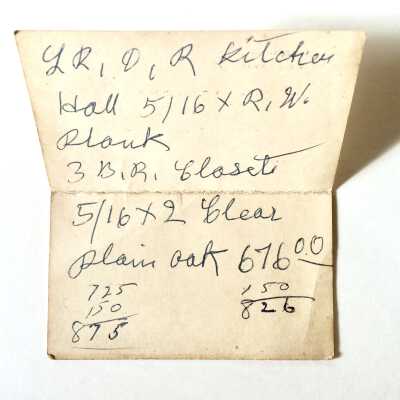 LR, D, R Kitchen
Hall 5/16 x R.W.
Plank
3 B.R. Closets
5/16 x 2 Clear
plain oak 676 00
725
150
875
150
826